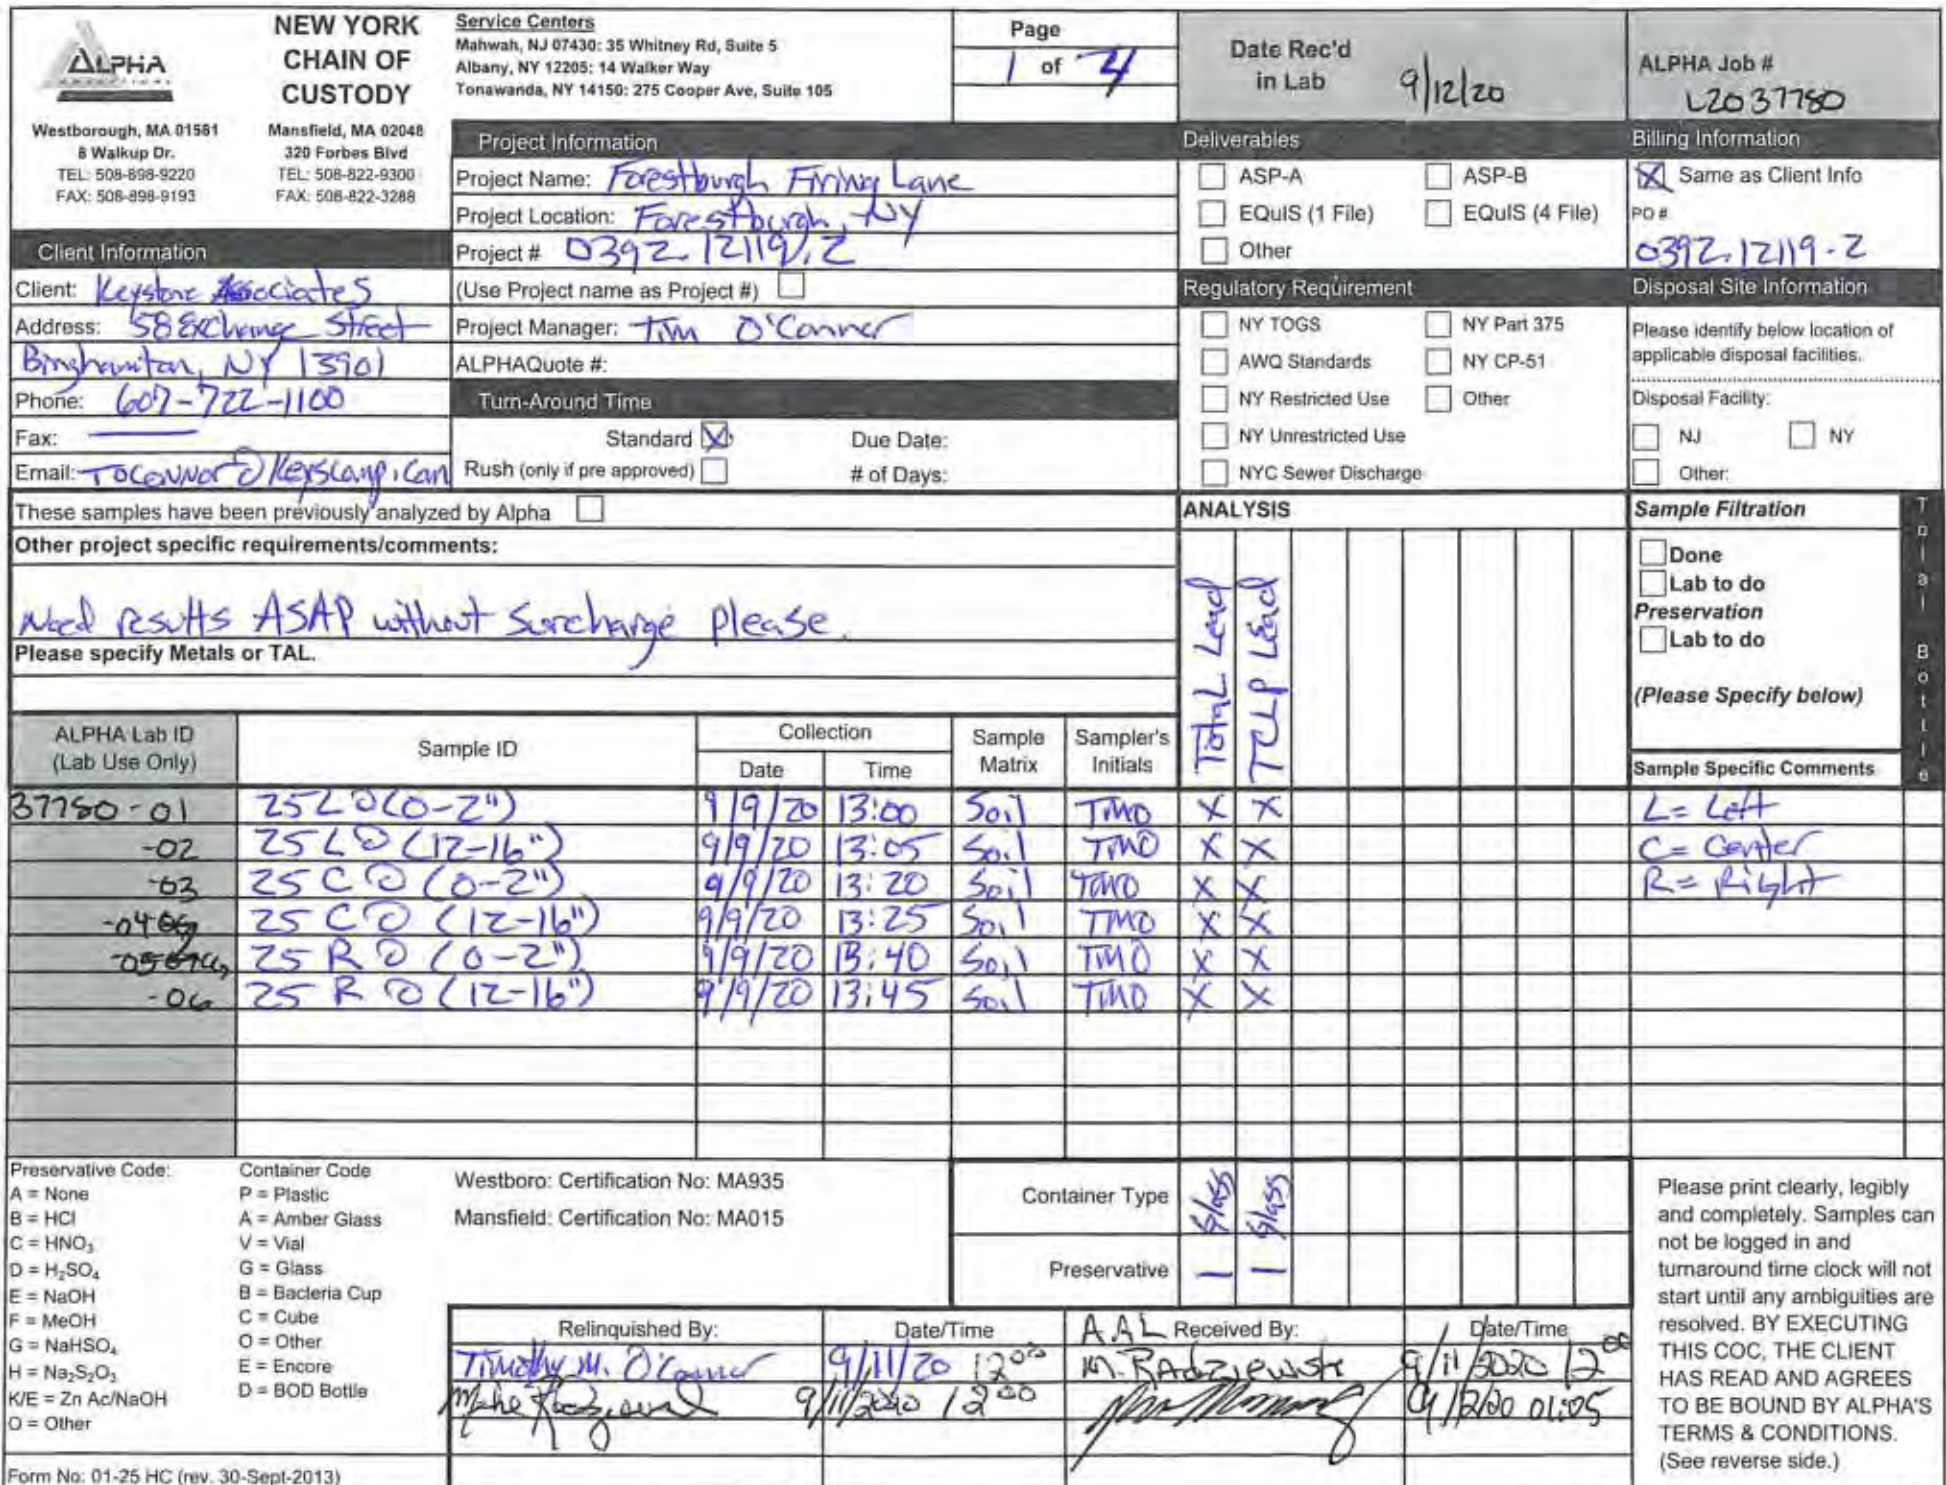 ALPHA
NEW YORK
CHAIN OF
CUSTODY
Westborough, MA 01581
8 Walkup Dr.
TEL: 508-898-9220
FAX: 508-898-9193
Mansfield, MA 02048
320 Forbes Blvd
TEL: 508-822-9300
FAX: 508-822-3288
Service Centers
Mahwah, NJ 07430: 35 Whitney Rd, Suite 5
Albany, NY 12205: 14 Walker Way
Tonawanda, NY 14150: 275 Cooper Ave, Suite 105
Page
1 of 4
Date Rec'd
in Lab 9/12/20
ALPHA Job #
L2037780
Client Information
Client: Keystone Associates
Address: 58 Exchange Street
Binghamton, NY 13901
Phone: 607-722-1100
Fax:
Email: TOConnor@
Project Information
Project Name: Forestburgh Firing Lane
Project Location: Forestburgh, NY
Project # 0392.12119.2
(Use Project name as Project #)
Project Manager: Tim O'Conner
ALPHAQuote #:
Turn-Around Time
Standard X Due Date:
Rush (only if pre approved) # of Days:
Deliverables
ASP-A ASP-B
EQuIS (1 File) EQuIS (4 File)
Other
Regulatory Requirement
NY TOGS NY Part 375
AWQ Standards NY CP-51
NY Restricted Use Other
NY Unrestricted Use
NYC Sewer Discharge
Billing Information
X Same as Client Info
PO #
0392.12119.2
Disposal Site Information
Please identify below location of
applicable disposal facilities.
Disposal Facility:
NJ NY
Other:
These samples have been previously analyzed by Alpha
Other project specific requirements/comments:
Need results ASAP without Surcharge please.
Please specify Metals or TAL.
ANALYSIS
Total Lead
TCLP Lead
Sample Filtration
Done
Lab to do
Preservation
Lab to do
(Please Specify below)
Total Bottle
ALPHA Lab ID
(Lab Use Only)
Sample ID
Collection
Date Time
Sample
Matrix
Sampler's
Initials
Sample Specific Comments
37780-01 25L@(0-2") 9/9/20 13:00 Soil TMO X X L= Left
-02 25L@(12-16") 9/9/20 13:05 Soil TMO X X C= Center
-03 25C@(0-2") 9/9/20 13:20 Soil TMO X X R= Right
-04 25C@(12-16") 9/9/20 13:25 Soil TMO X X
-05 25R@(0-2") 9/9/20 13:40 Soil TMO X X
-06 25R@(12-16") 9/9/20 13:45 Soil TMO X X
Preservative Code:
A = None
B = HCl
C = HNO₃
D = H₂SO₄
E = NaOH
F = MeOH
G = NaHSO₄
H = Na₂S₂O₃
K/E = Zn Ac/NaOH
O = Other
Container Code
P = Plastic
A = Amber Glass
V = Vial
G = Glass
B = Bacteria Cup
C = Cube
O = Other
E = Encore
D = BOD Bottle
Westboro: Certification No: MA935
Mansfield: Certification No: MA015
Container Type Glass Glass
Preservative
Relinquished By: Date/Time AAL Received By: Date/Time
Timothy M. O'Conner 9/11/20 12⁰⁰ M. Radziewski 9/11/2020 12⁰⁰
9/11/2020 12⁰⁰ 9/12/20 01:05
Please print clearly, legibly
and completely. Samples can
not be logged in and
turnaround time clock will not
start until any ambiguities are
resolved. BY EXECUTING
THIS COC, THE CLIENT
HAS READ AND AGREES
TO BE BOUND BY ALPHA'S
TERMS & CONDITIONS.
(See reverse side.)
Form No: 01-25 HC (rev. 30-Sept-2013)